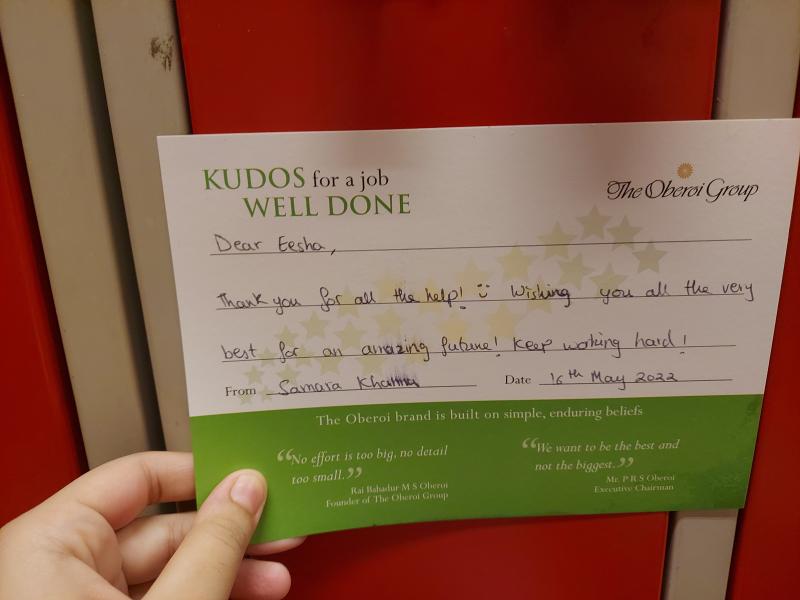 KUDOS for a job
WELL DONE
The Oberoi Group
Dear Eesha,
Thank you for all the help! :) Wishing you all the very
best for an amazing future! Keep working hard!
From Samara Date 16th May 2022
The Oberoi brand is built on simple, enduring beliefs
“No effort is too big, no detail
too small.”
Rai Bahadur M S Oberoi
Founder of The Oberoi Group
“We want to be the best and
not the biggest.”
Mr. P R S Oberoi
Executive Chairman